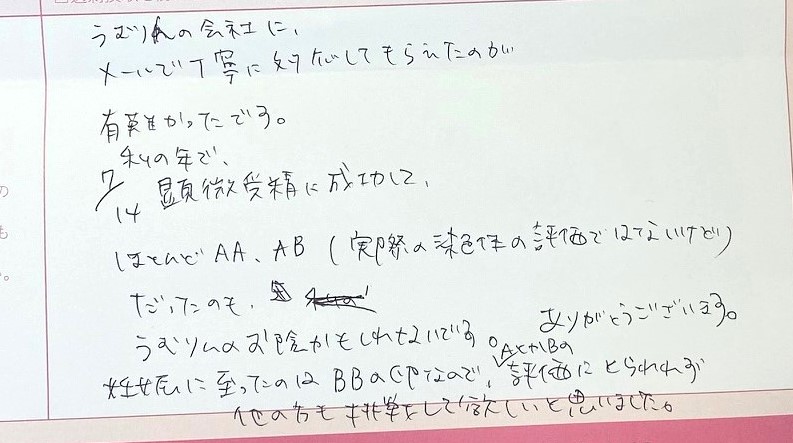 うむりんの会社に、
メールで丁寧に対応してもらえたのが
有難かったです。
私の年で、
7/14 顕微受精に成功して、
ほとんどAA、AB(実際の染色体の評価ではないけど)
だったのも、
うむりんのお陰かもしれないです ありがとうございます。
AとかBの
妊娠に至ったのはBBの なので、評価にとらわれず
他の方も挑戦をして欲しいと思いました。